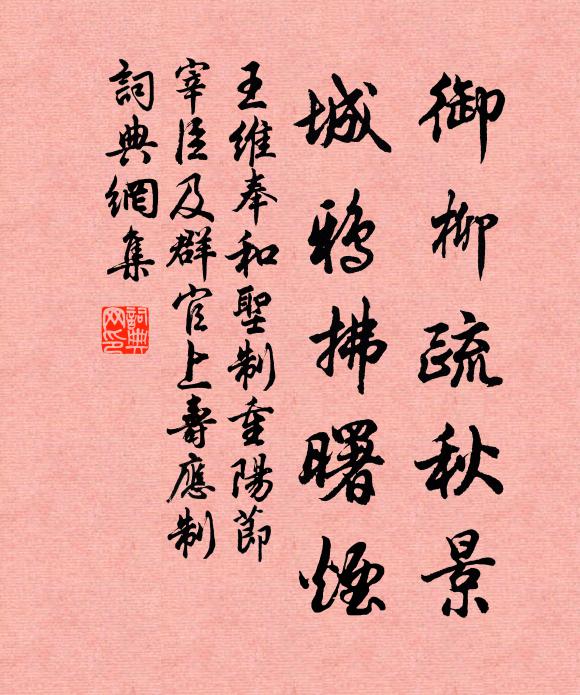 御柳疏秋景
城鴉拂曙煙
王維奉和聖制重陽節
宰臣及群官上壽應制
詞典網集
詞典网印